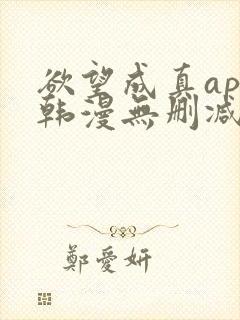 欲望成真ap
韩漫無删减
鄭愛妍